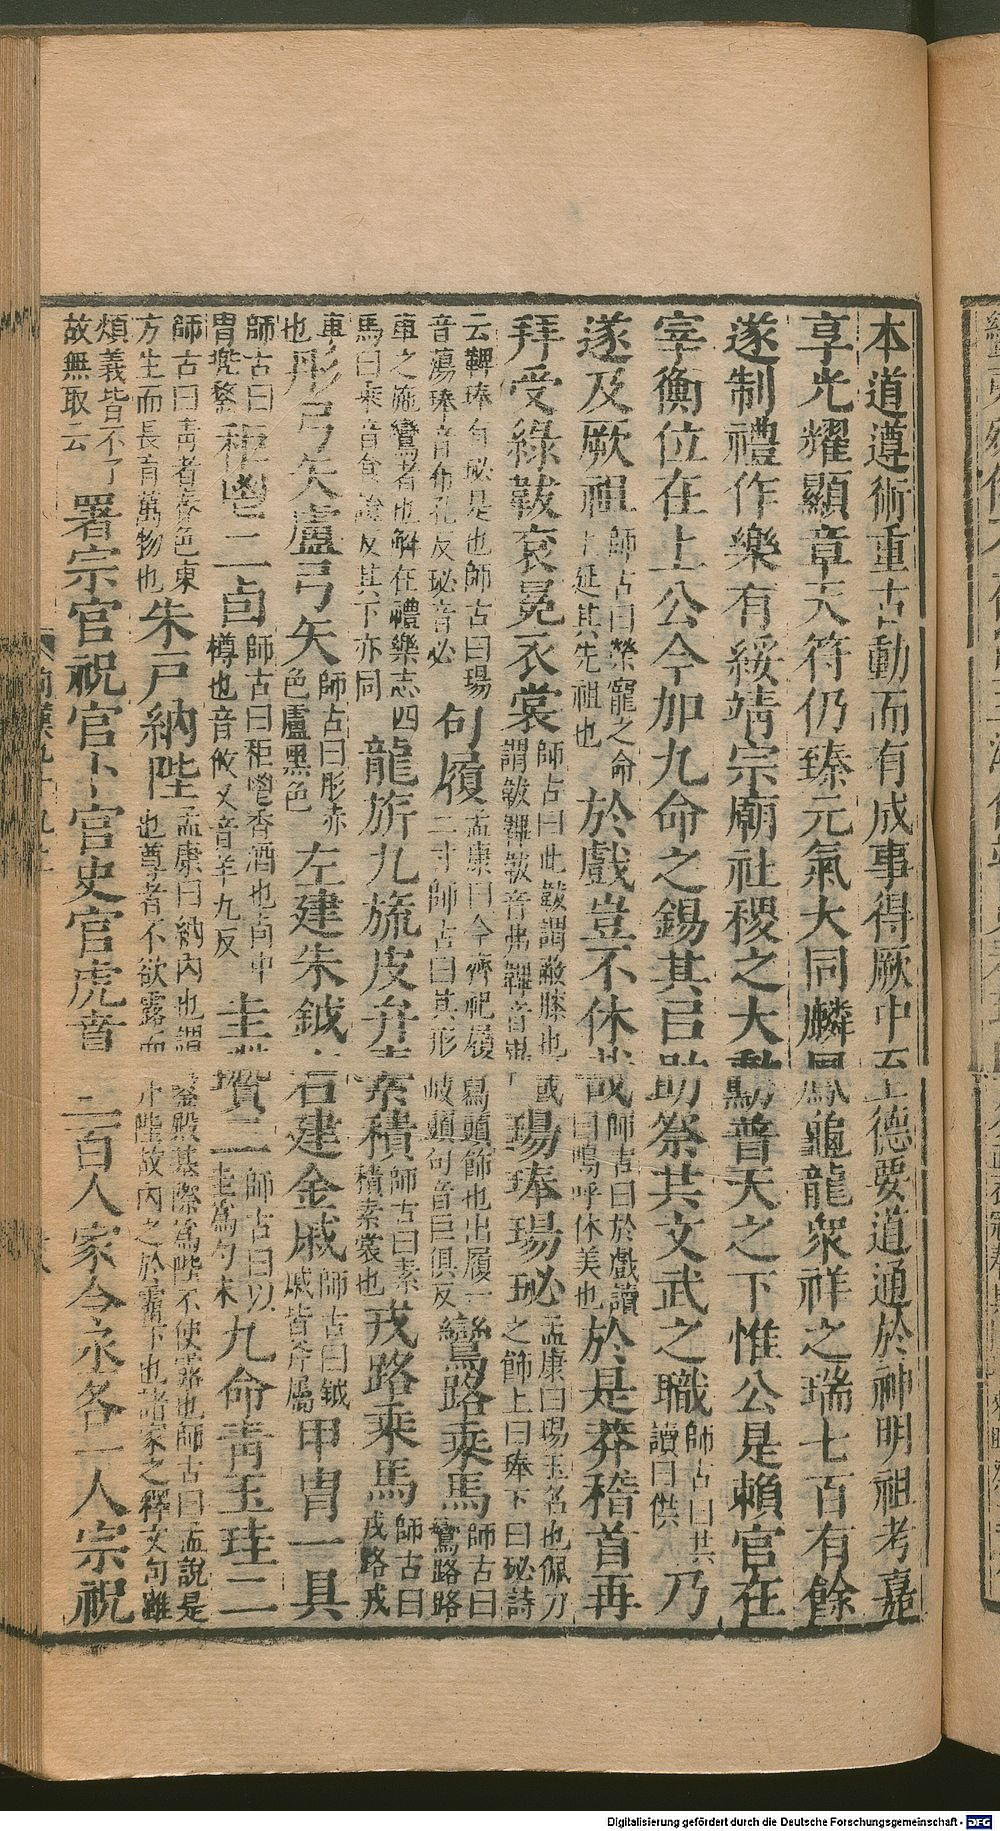 本道遵術重古動而有成事得厥中至德要道通於神明祖考嘉
享光耀顯章天符仍臻元氣大同麟鳳龜龍衆祥之瑞七百有餘
遂制禮作樂有綏靖宗廟社稷之大勳普天之下惟公是賴官在
宰衡位在上公今加九命之錫其㠯助祭共文武之職師古曰共讀曰供乃
遂及厥祖師古曰榮寵之命上延其先祖也於戲豈不休哉師古曰於戲讀曰嗚呼休美也於是莽稽首再
拜受綠韍衮冕衣裳師古曰此韍謂蔽膝也謂韍韠韍音弗韠音畢或瑒琫瑒珌孟康曰瑒玉名也佩刀之飾上曰琫下曰珌詩
云鞞琫有珌是也師古曰瑒音蕩琫音布孔反珌音必句履孟康曰今齊祀履舄頭飾也出履一二寸師古曰其形岐頭句音巨俱反鸞路乘馬師古曰鸞路路
車之施鸞者也解在禮樂志四馬曰乘音食證反其下亦同龍旂九旒皮弁素積師古曰素積素裳也戎路乘馬師古曰戎路戎
車也彤弓矢盧弓矢師古曰彤赤色盧黑色左建朱鉞右建金戚師古曰鉞戚皆斧屬甲胄一具
師古曰胄兜鍪秬鬯二卣師古曰秬鬯香酒也卣中樽也音攸又音羊九反圭瓚二師古曰以圭爲勺末九命青玉珪二
師古曰青者春色東方生而長育萬物也朱戶納陛孟康曰納內也謂鑿殿基際爲陛不使露也師古曰孟說是也尊者不欲露而升陛故內之於霤下也諸家之釋文句雖
煩義皆不了故無取云署宗官祝官卜官史官虎賁三百人家令丞各一人宗祝
前漢九十九上
Digitalisierung gefördert durch die Deutsche Forschungsgemeinschaft - DFG